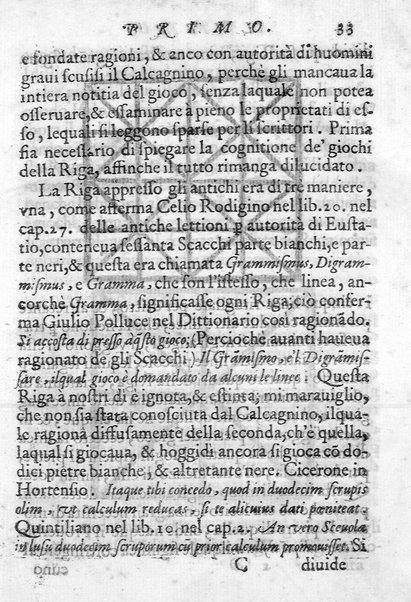 PRIMO. 33
e fondate ragioni, & anco con autorità di huomini
graui scusisi il Calcagnino, perche gli mancaua la
intiera notitia del gioco, senza laquale non potea
osseruare, & essaminare à pieno le proprietati di es-
so, lequali si leggono sparse per li scrittori. Prima
fia necessario di spiegare la cognitione de' giochi
della Riga, affinche il tutto rimanga dilucidato.
La Riga appresso gli antichi era di tre maniere,
vna, come afferma Celio Rodigino nel lib. 20. nel
cap. 27. delle antiche lettioni p autorità di Eusta-
tio, conteneua sessanta Scacchi parte bianchi, e par
te neri, & questa era chiamata Grammismus, Digram-
mismus, e Gramma, che son l'istesso, che linea, an-
corche Gramma, significasse ogni Riga; ciò confer-
ma Giulio Polluce nel Dittionario cosi ragionãdo.
Si accosta di presso à q̃sto gioco; (Percioche auanti haueua
ragionato de gli Scacchi) il Grãmismo, e'l Digrãmis-
sare, ilqual gioco è domandato da alcuni le linee: Questa
Riga à nostri dì è ignota, & estinta; mi marauiglio,
che non sia stata conosciuta dal Calcagnino, ilqua-
le ragiona diffusamente della seconda, ch'è quella,
laqual si giocaua, & hoggidi ancora si gioca cõ do-
dici pietre bianche, & altretante nere. Cicerone in
Hortensio. Itaque tibi concedo, quod in duodecim scrupis
olim, vt calculum reducas, si te alicuius dati pœniteat.
Quintiliano nel lib. 10. nel cap. 2. An vero Scæuola
in lusu duodecim scruporum cũ prior calculum promouisset. Si
C diuide